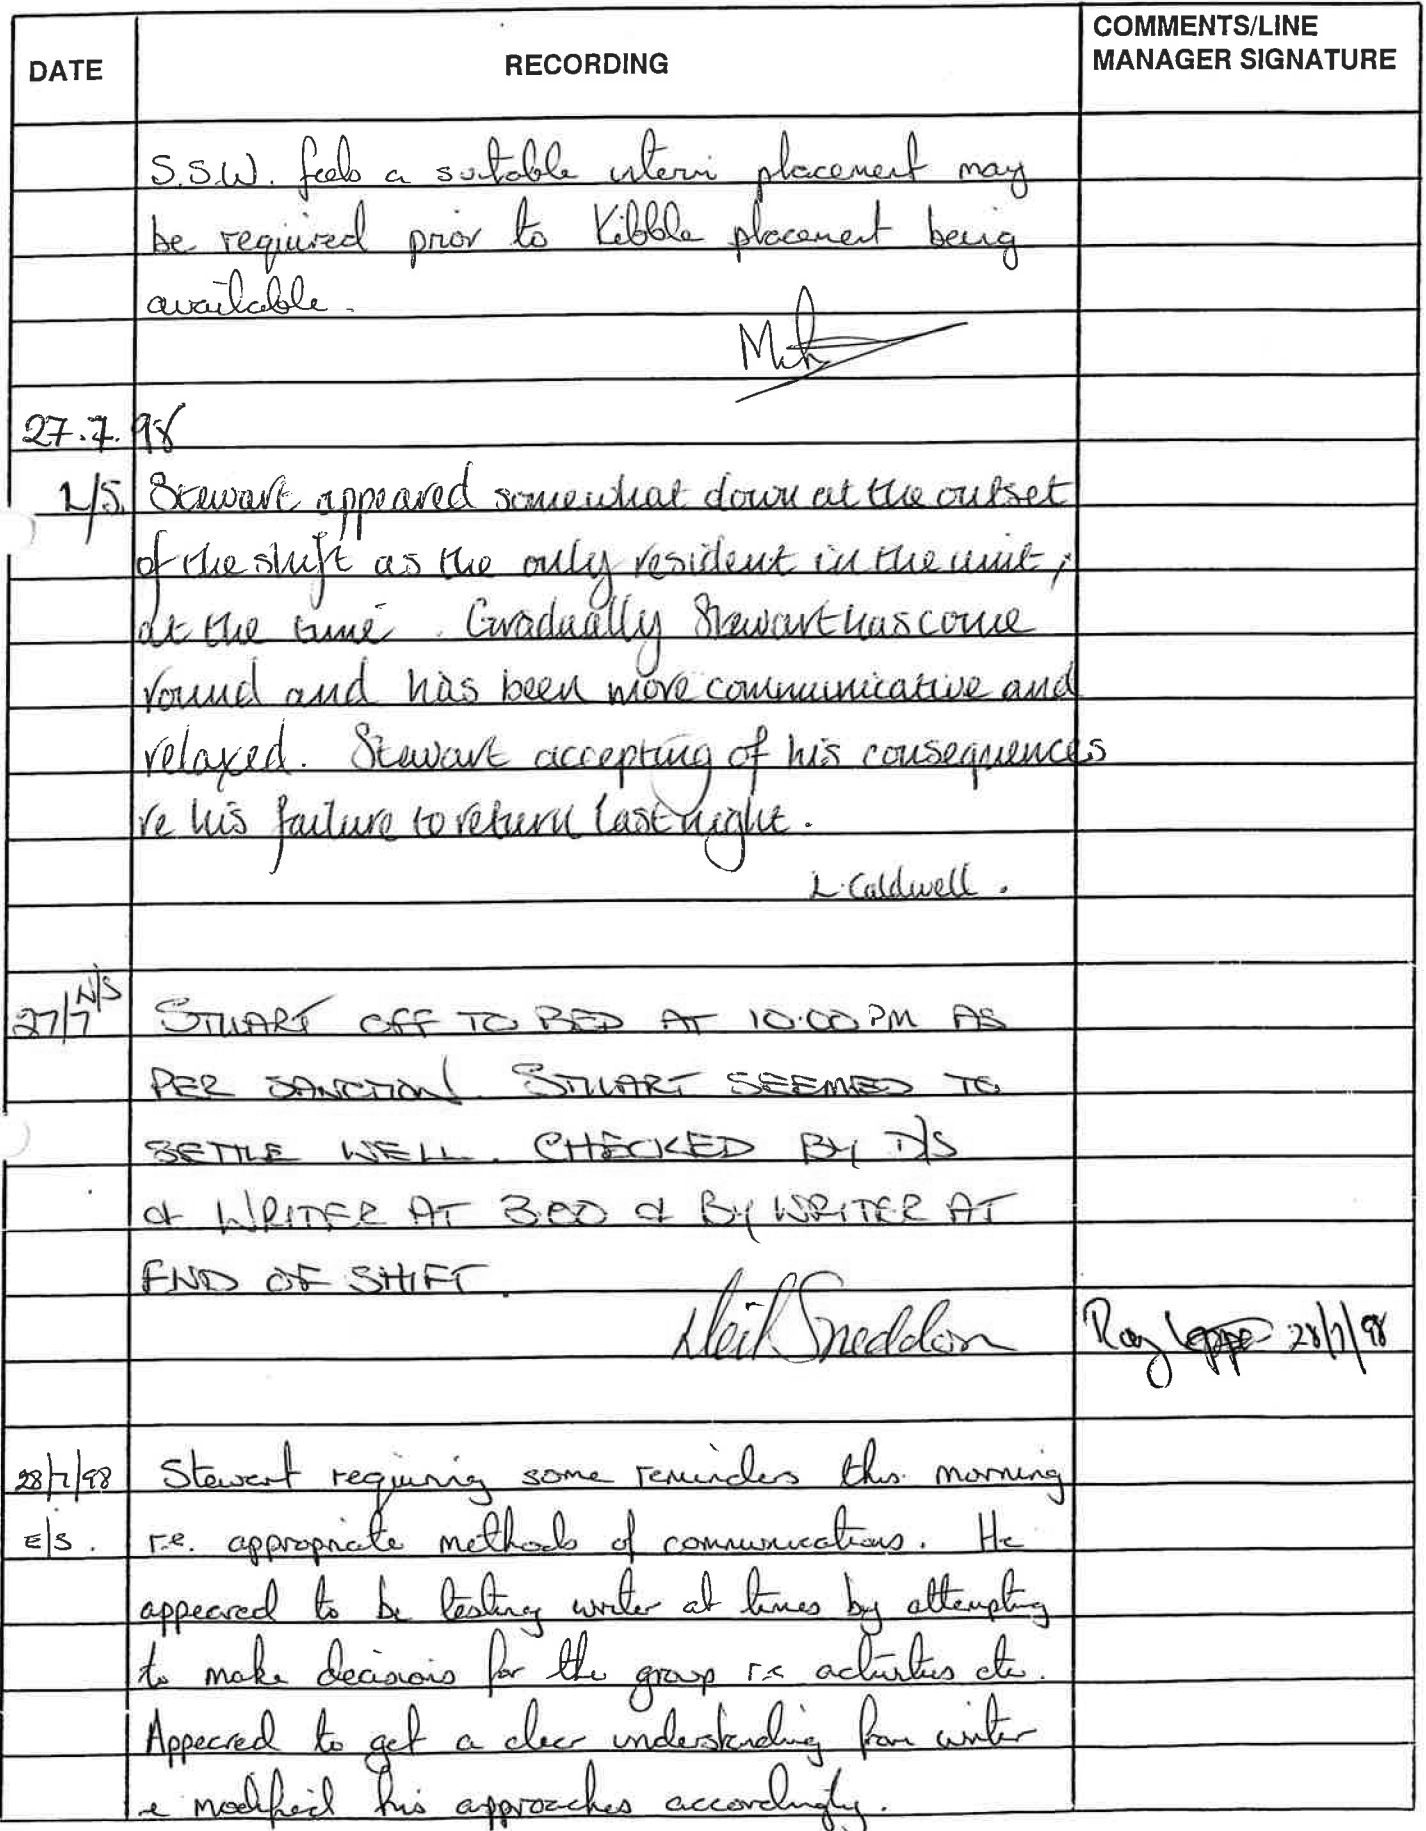 DATE
RECORDING
COMMENTS/LINE
MANAGER SIGNATURE
S.S.W. feels a suitable interim placement may
be required prior to Kibble placement being
available.
27.7.98
L/S. Stewart appeared somewhat down at the outset
of the shift as the only resident in the unit,
at the time. Gradually Stewart has come
round and has been more communicative and
relaxed. Stewart accepting of his consequences
re his failure to return last night.
L. Caldwell.
27/7 N/S STUART OFF TO BED AT 10.00 PM AS
PER SANCTION. STUART SEEMED TO
SETTLE WELL. CHECKED BY D/S
& WRITER AT 3.00 & BY WRITER AT
END OF SHIFT.
Neil Sneddon
Roy 28/7/98
28/7/98 Stewart requiring some reminders this morning
E/S. r.e. appropriate methods of communications. He
appeared to be testing writer at times by attempting
to make decisions for the group re activities etc.
Appeared to get a clear understanding from writer
& modified his approaches accordingly.